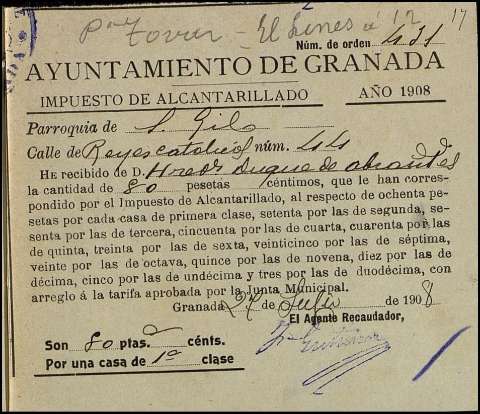 Tovar - El Lunes a 12
17
Núm. de orden 431
AYUNTAMIENTO DE GRANADA
IMPUESTO DE ALCANTARILLADO AÑO 1908
Parroquia de S. Gil
Calle de Reyes catolicos núm. 44
HE recibido de D. Hreds. Duque de abrantes
la cantidad de 80 pesetas céntimos, que le han corres-
pondido por el Impuesto de Alcantarillado, al respecto de ochenta pe-
setas por cada casa de primera clase, setenta por las de segunda, se-
senta por las de tercera, cincuenta por las de cuarta, cuarenta por las
de quinta, treinta por las de sexta, veinticinco por las de séptima,
veinte por las de octava, quince por las de novena, diez por las de
décima, cinco por las de undécima y tres por las de duodécima, con
arreglo á la tarifa aprobada por la Junta Municipal.
Granada 27 de Julio de 1908
El Agente Recaudador,
Son 80 ptas. cénts.
Por una casa de 1ª clase